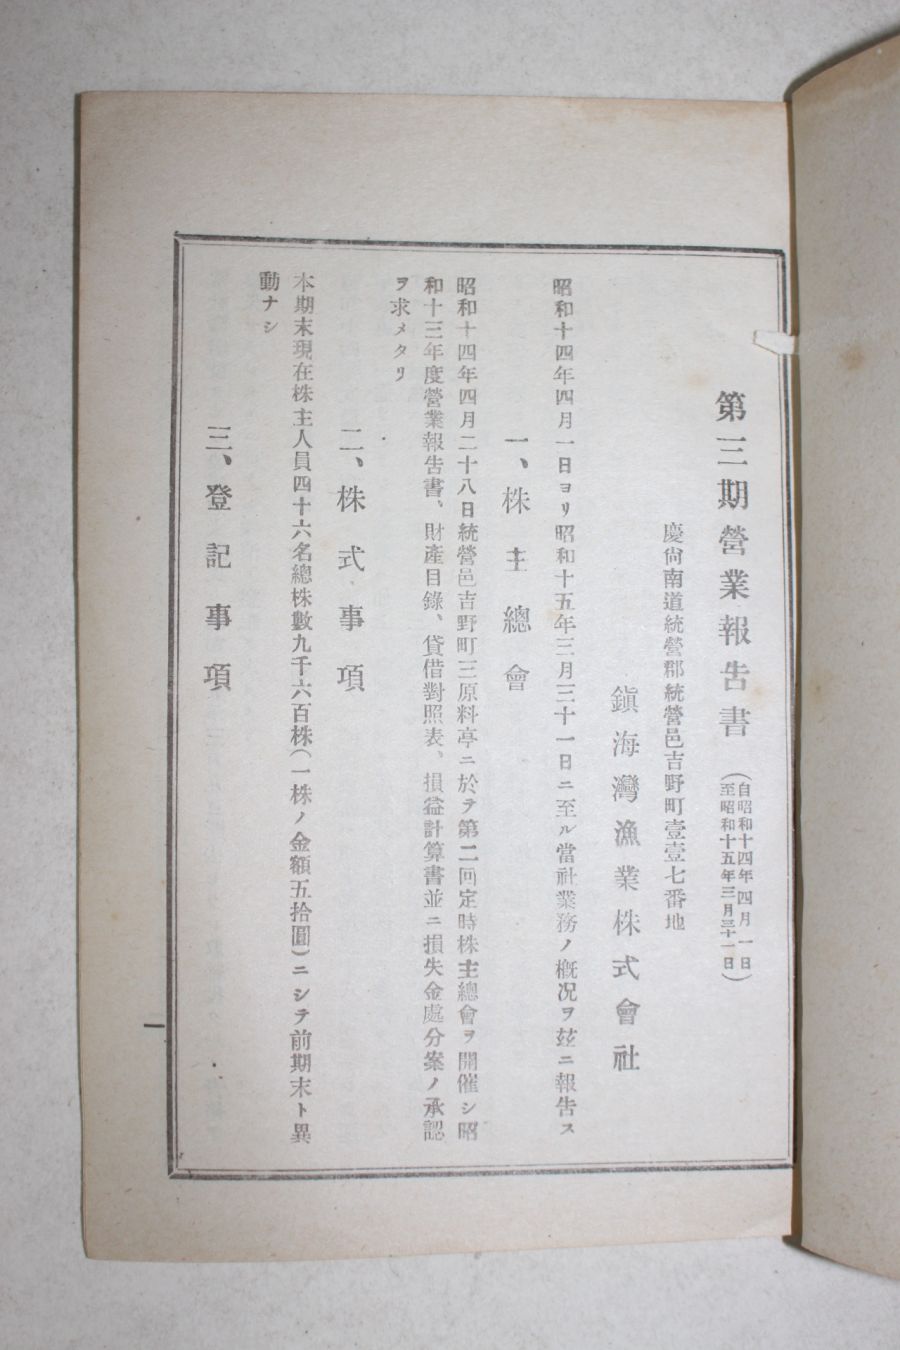 第三期營業報告書
(自昭和十四年四月一日
至昭和十五年三月三十一日)
慶尙南道統營郡統營邑吉野町壹壹七番地
鎭海灣漁業株式會社
昭和十四年四月一日ヨリ昭和十五年三月三十一日ニ至ル當社業務ノ槪况ヲ玆ニ報告ス
一、株主總會
昭和十四年四月二十八日統營邑吉野町三原料亭ニ於テ第二回定時株主總會ヲ開催シ昭
和十三年度營業報告書、財產目錄、貸借對照表、損益計算書並ニ損失金處分案ノ承認
ヲ求メタリ
二、株式事項
本期末現在株主人員四十六名總株數九千六百株(一株ノ金額五拾圓)ニシテ前期末ト異
動ナシ
三、登記事項
一